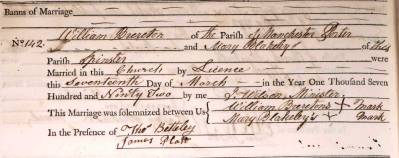 Banns of Marriage
No. 142. William Brereton of the Parish of Manchester Porter
and Mary Blakeby of This
Parish Spinster were
Married in this Church by Licence
this Seventeenth Day of March in the Year One Thousand Seven
Hundred and Ninety Two by me J Wilson Minister
This Marriage was solemnized between Us William Brereton's X Mark
Mary Blakeby's X Mark
In the Presence of Thos. Batteley
James Platt